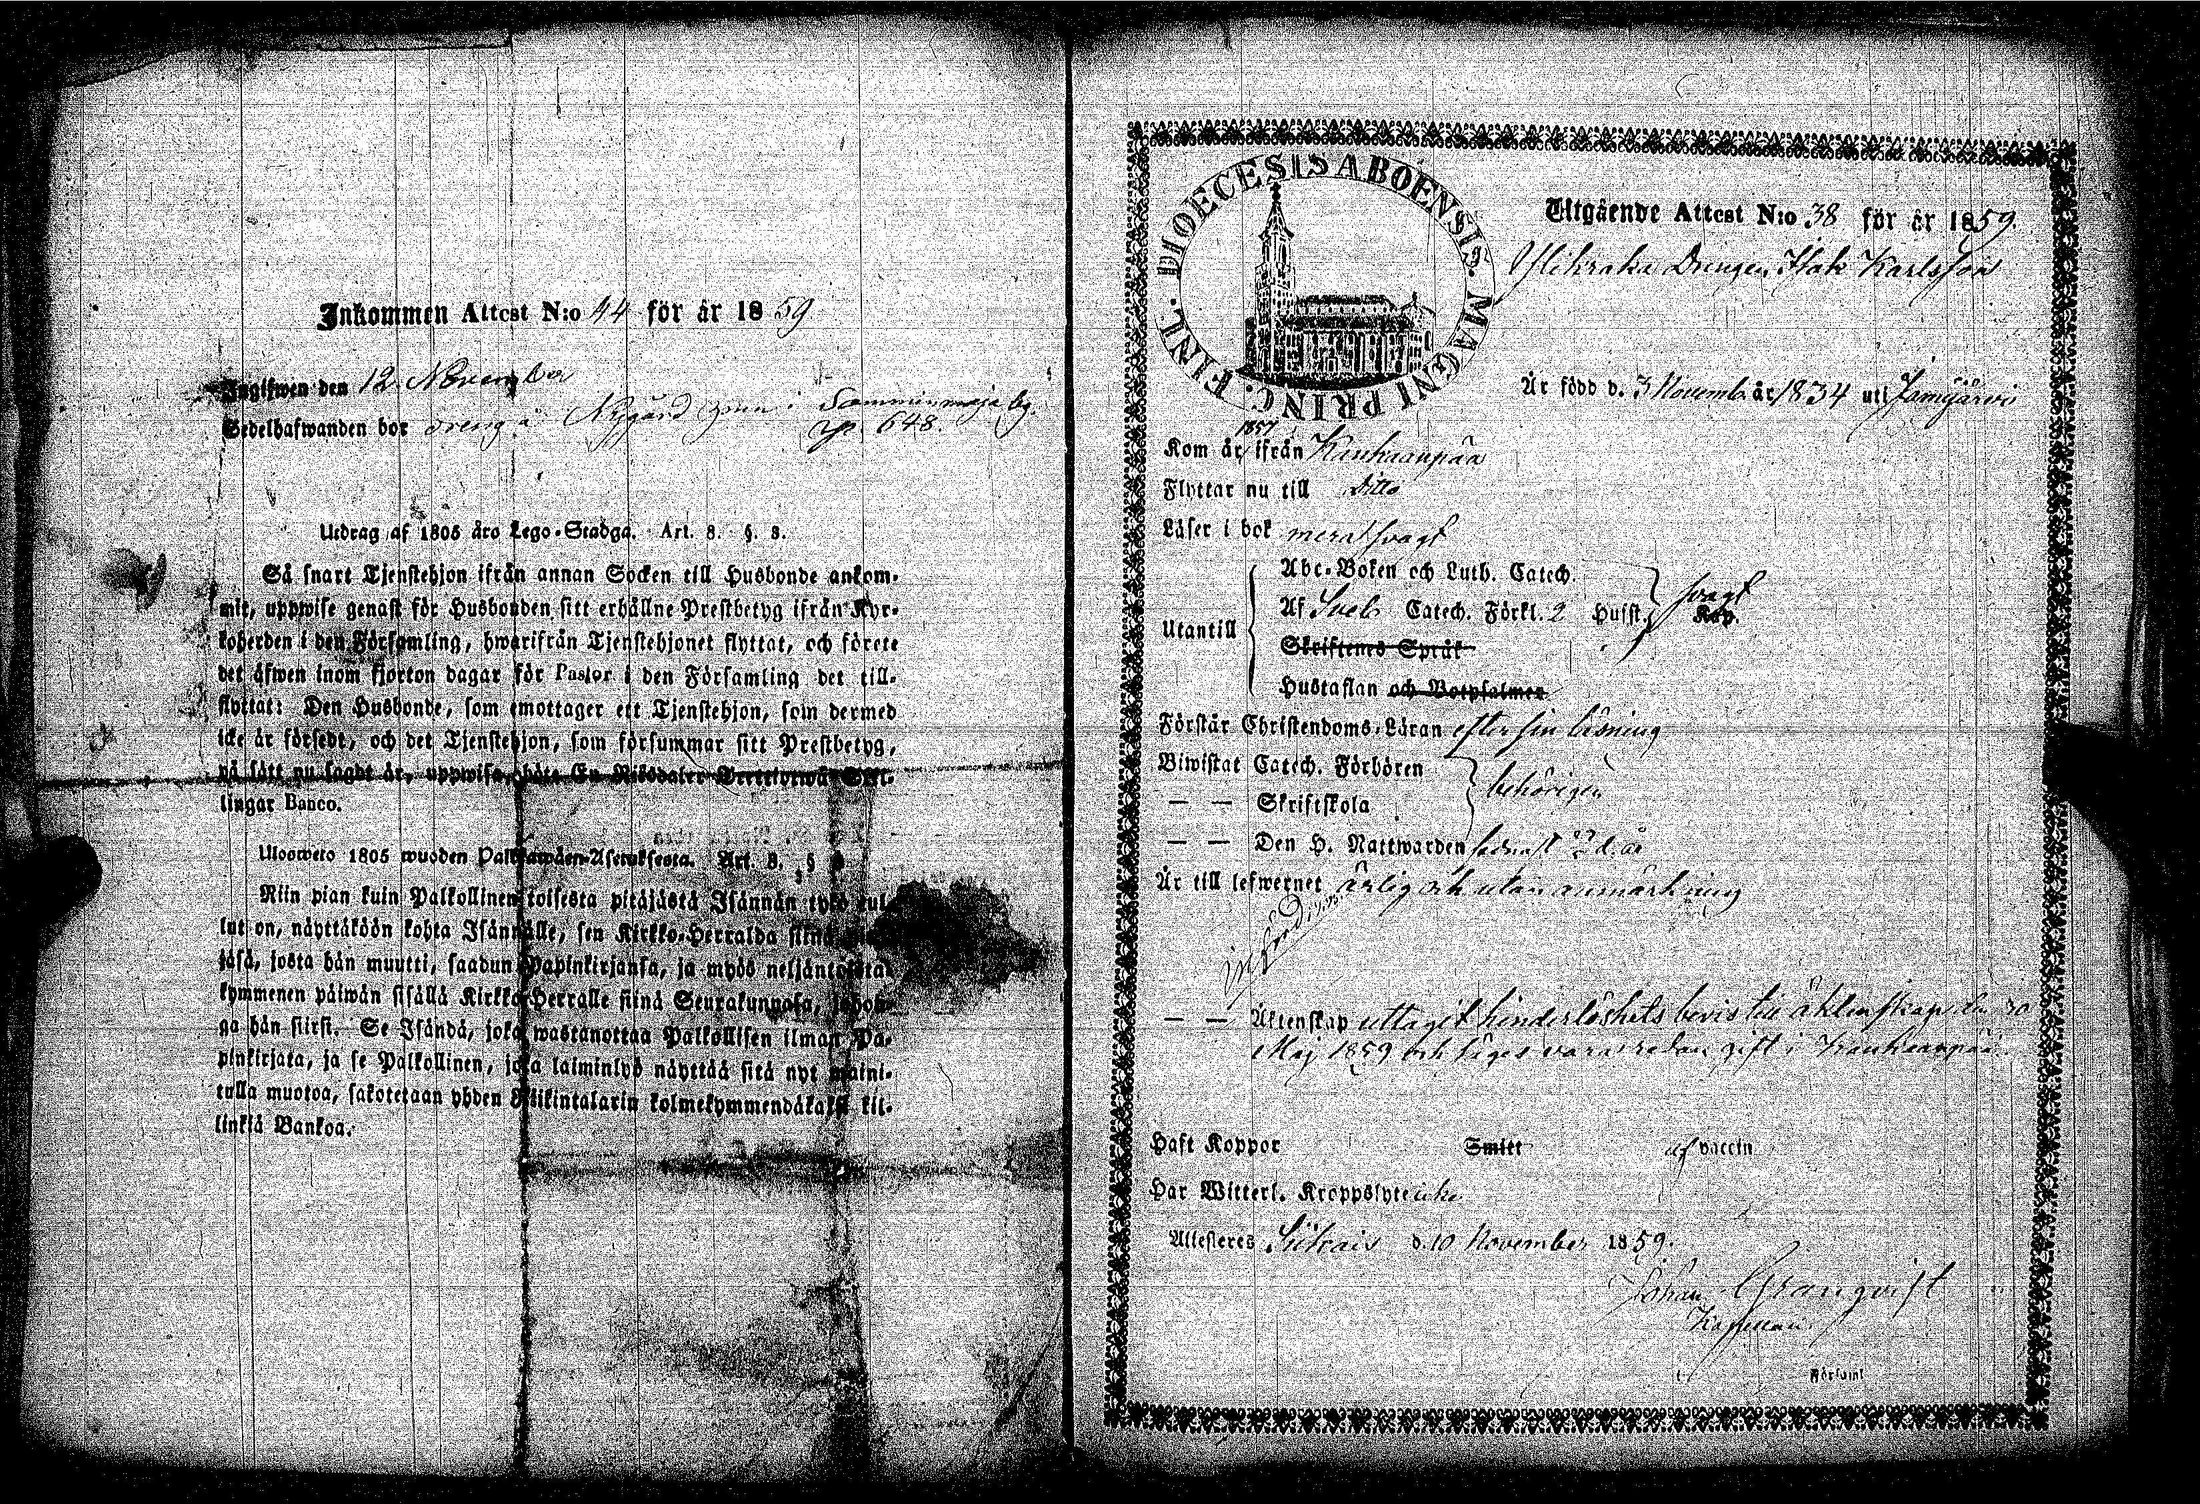 Inkommen Attest N:o 44 för år 1859
Ingifwen den 12 November
Sedelhafwanden bor dreng å Nygård i Sammi maja by.
p. 648.
Utdrag af 1805 års Lego-Stadga. Art. 8. §. 3.
Så snart Tjenstehjon ifrån annan Socken till Husbonde ankom-
mit, uppwise genast för Husbonden sitt erhållne Prestbetyg ifrån Kyr-
koherden i den Församling, hwarifrån Tjenstehjonet flyttat, och förete
det äfwen inom fjorton dagar för Pastor i den Församling det till-
flyttat: Den Husbonde, som emottager ett Tjenstehjon, som dermed
icke är försedt, och det Tjenstehjon, som försummar sitt Prestbetyg,
på sätt nu sagdt är, uppwisa, böte En Riksdaler Trettiotwå Skil-
lingar Banco.
Ulosweto 1805 wuoden Palkkawäen-Asetuksesta. Art. 8. §
Niin pian kuin Palkollinen toisesta pitäjästä Isännän tykö tul-
lut on, näyttäköön kohta Isännälle, sen Kirkko-Herralda siinä
jäsä, josta hän muutti, saadun Papinkirjansa, ja myös neljäntoista-
kymmenen päiwän sisällä Kirkko-Herralle siinä Seurakunnasa, johon-
ga hän siirsi. Se Isändä, joka wastanottaa Palkollisen ilman Pa-
pinkirjata, ja se Palkollinen, joka laiminlyö näyttää sitä nyt maini-
tulla muotoa, sakotetaan yhden Riikintalarin kolmekymmendäkaksi kil-
linkiä Bankoa.
DIOECESIS ABOENSIS. MAGNI PRINC. FINL.
Utgående Attest N:o 38 för år 1859.
Drengen Isak Karlsson
Är född d. 3 Novemb. år 1834 uti Jämijärvi
1857
Kom år ifrån Kanhaanpää
Flyttar nu till Ditto
Läser i bok svagt
Abc-Boken och Luth. Catech.
Utantill Af Sveb. Catech. Förkl. 2 Husst. svagt Kap.
Skriftenes Språk
Hustaflan och Botpsalmer
Förstår Christendoms-Läran efter sin läsning
Biwistat Catech. Förhören
— — Skriftskola behörigen
— — Den H. Nattwarden sednast d. år
Är till lefwernet ärlig och utan anmärkning
— — Äktenskap uttagit hinderlöshets bevis till äktenskap den 30
Maj 1859 och säges vara redan gift i Kanhaanpää
Haft Koppor Smitt af vaccin
Har Witterl. Kroppslyte icke
Attesteres d. 10 November 1859.
Johan Granqvist
Kapellan
Församl